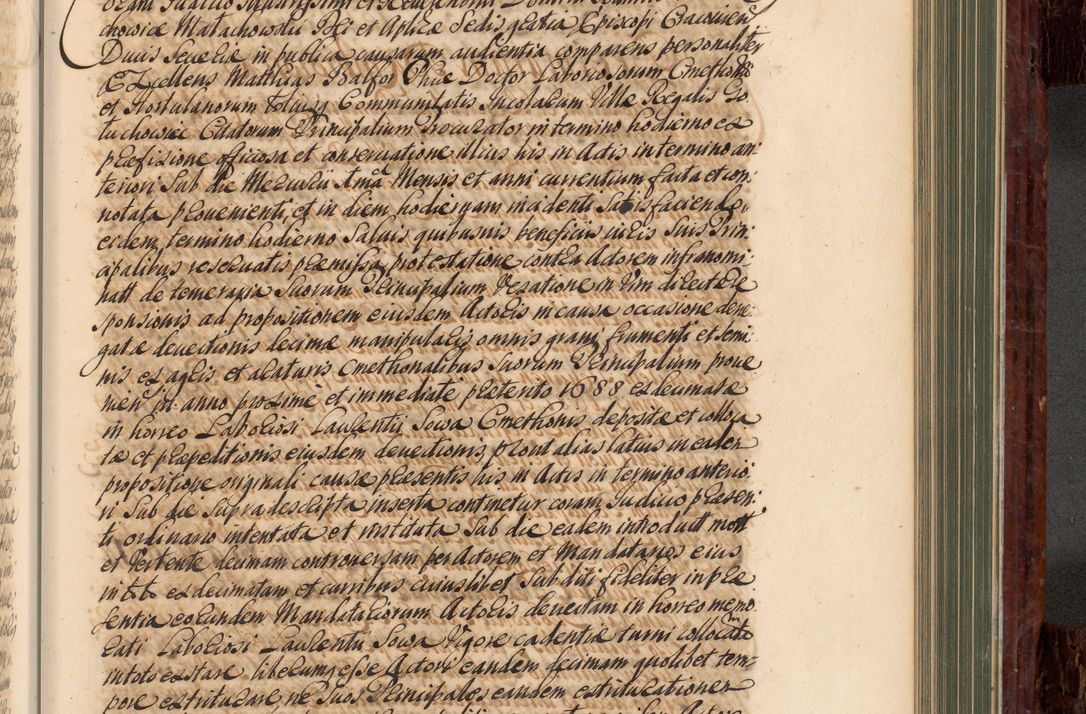 coram Judicio Illustrissimi et Reverendissimi Domini Joannis
chowice Małachowski Dei et Aplicæ Sedis gratia Episcopi Cracovien
Ducis Severiæ in publica causarum audientia comparens personaliter
Excellens Matthias Balfor Phiæ Doctor Laboriosorum Cmethonũ
et Hortulanorum totiusq Communitatis Incolarum Villæ Regalis
tuchowiec Citatorum Principalium Procurator in termino hodierno ex
præfixione officiosa et conservatione illius his in Actis in termino an:
teriori Sub die Mercurii Ama Mensis et anni currentium facta et con:
notata provenienti, et in diem hodiernam incidenti Satisfaciendo,
eidem termino hodierno Salvis quibusvis beneficiis iuris Suis Prin
cipalibus reservatis præmissa protestatione contra Actorem infranomi:
natt de temeraria Suorum Principalium Vexatione in Vim directæ re
sponsionis ad propositionem eiusdem Actoris in causa occasione dene:
gatæ devectionis decimæ manipularis omnis grani frumenti et Semi
nis ex agris et araturis Cmethonalibus Suorum Principalium prove
nien in anno proxime et immediate præterito 1688 ex decimatæ
in horreo Laboriosi Laurentii Sowa Cmethonis depositæ et colloca
tæ et præpeditionis eiusdem devectionis, prout alias latius in eadem
propositione originali causæ præsentis his in Actis in termino anterio:
ri Sub die Supradescripta inserta continetur coram Judicio præsen:
ti ordinario intentata et instituta Sub die eadem introduct mott
et Vertente decimam controversam per Actorem et Mandatarios eius
in toto ex decimatam et curribus cuiuslibet Subditi fideliter in præ
sentia eorundem Mandatariorum Actoris devectam in horreo memo
rati Laboriosi Laurentii Sowa Vigore cadentiæ turni collocatam
in toto extare liberumq esse Actori eandem decimam quolibet tem:
pore extriturare, ne Suos Principales eandem extriturationem